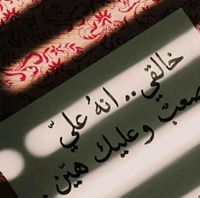 خالقي.. انهُ عليّ
صعبٌ وعليك هيّن.